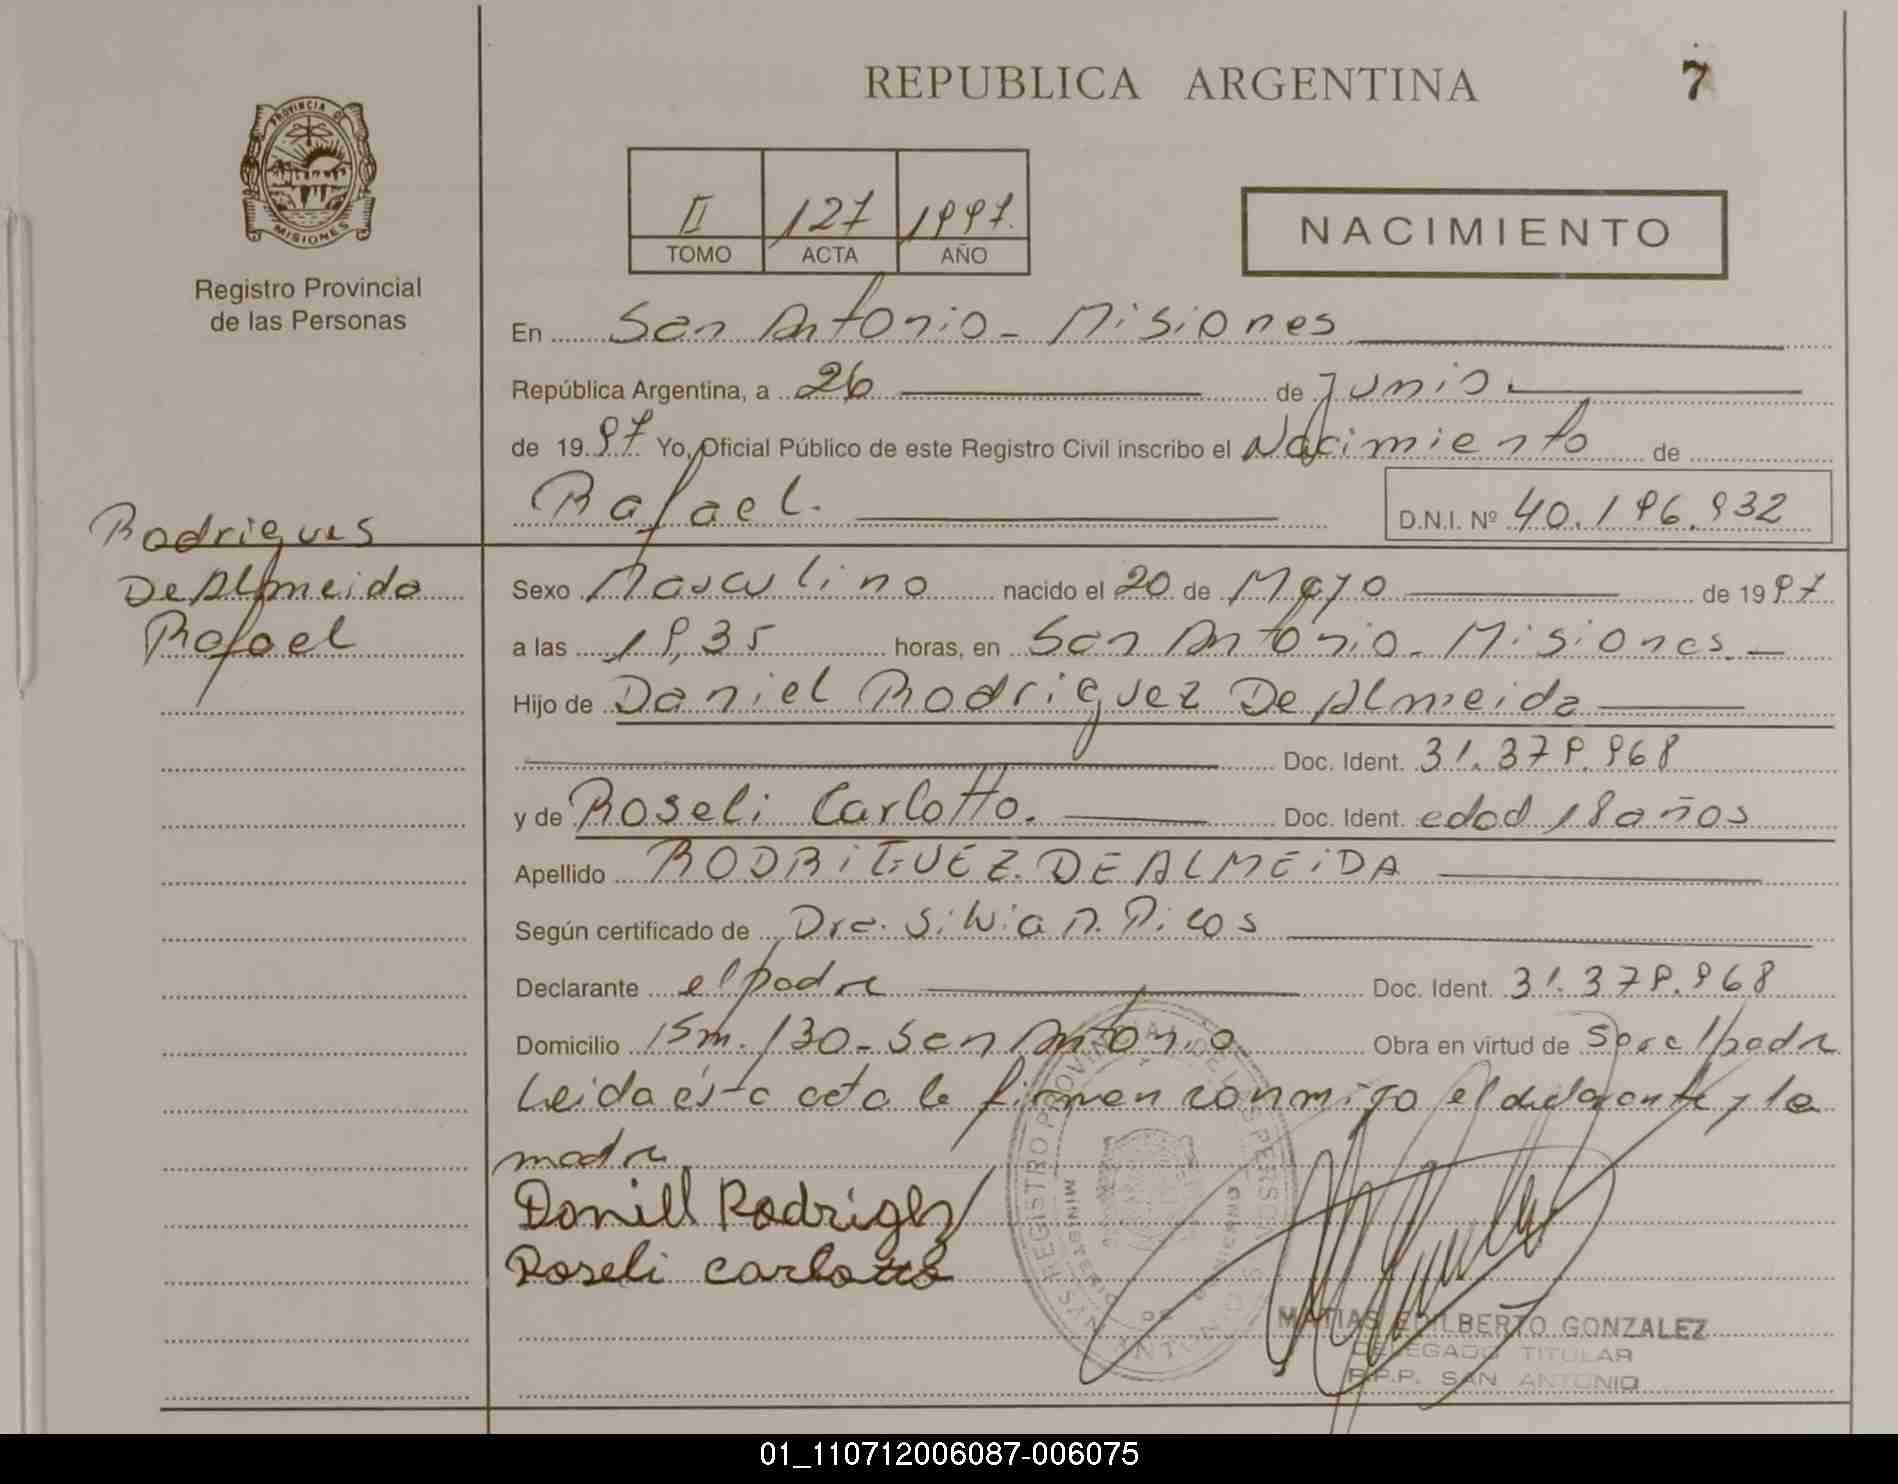 REPUBLICA ARGENTINA
7
PROVINCIA DE
MISIONES
Registro Provincial
de las Personas
II 127 1997.
TOMO ACTA AÑO
NACIMIENTO
En San Antonio - Misiones
República Argentina, a 26 de Junio.
de 1997. Yo, Oficial Público de este Registro Civil inscribo el Nacimiento de
Rafael.
D.N.I. Nº 40.196.932
Rodrigues
De Almeida
Rafael
Sexo Masculino nacido el 20 de Mayo de 1997
a las 19,35 horas, en San Antonio - Misiones. -
Hijo de Daniel Rodriguez De Almeida
Doc. Ident. 31.379.968
y de Roseli Carlotto. Doc. Ident. edad 18 años
Apellido RODRIGUEZ DE ALMEIDA
Según certificado de Dra. Silvia
Declarante el padre Doc. Ident. 31.379.968
Domicilio 130 - San Antonio Obra en virtud de ser el padre
Leida ésta acta la firman conmigo el declarante y la
madre
Roseli Carlotto
REGISTRO PROVINCIAL DE LAS PERSONAS
MINISTERIO DE GOBIERNO
SAN ANTONIO
MATIAS EDILBERTO GONZALEZ
DELEGADO TITULAR
R.P.P. SAN ANTONIO
01_110712006087-006075